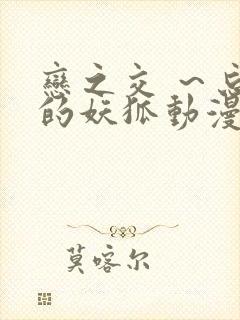 戀之交 ~忘
的妖狐動漫
莫喀尔